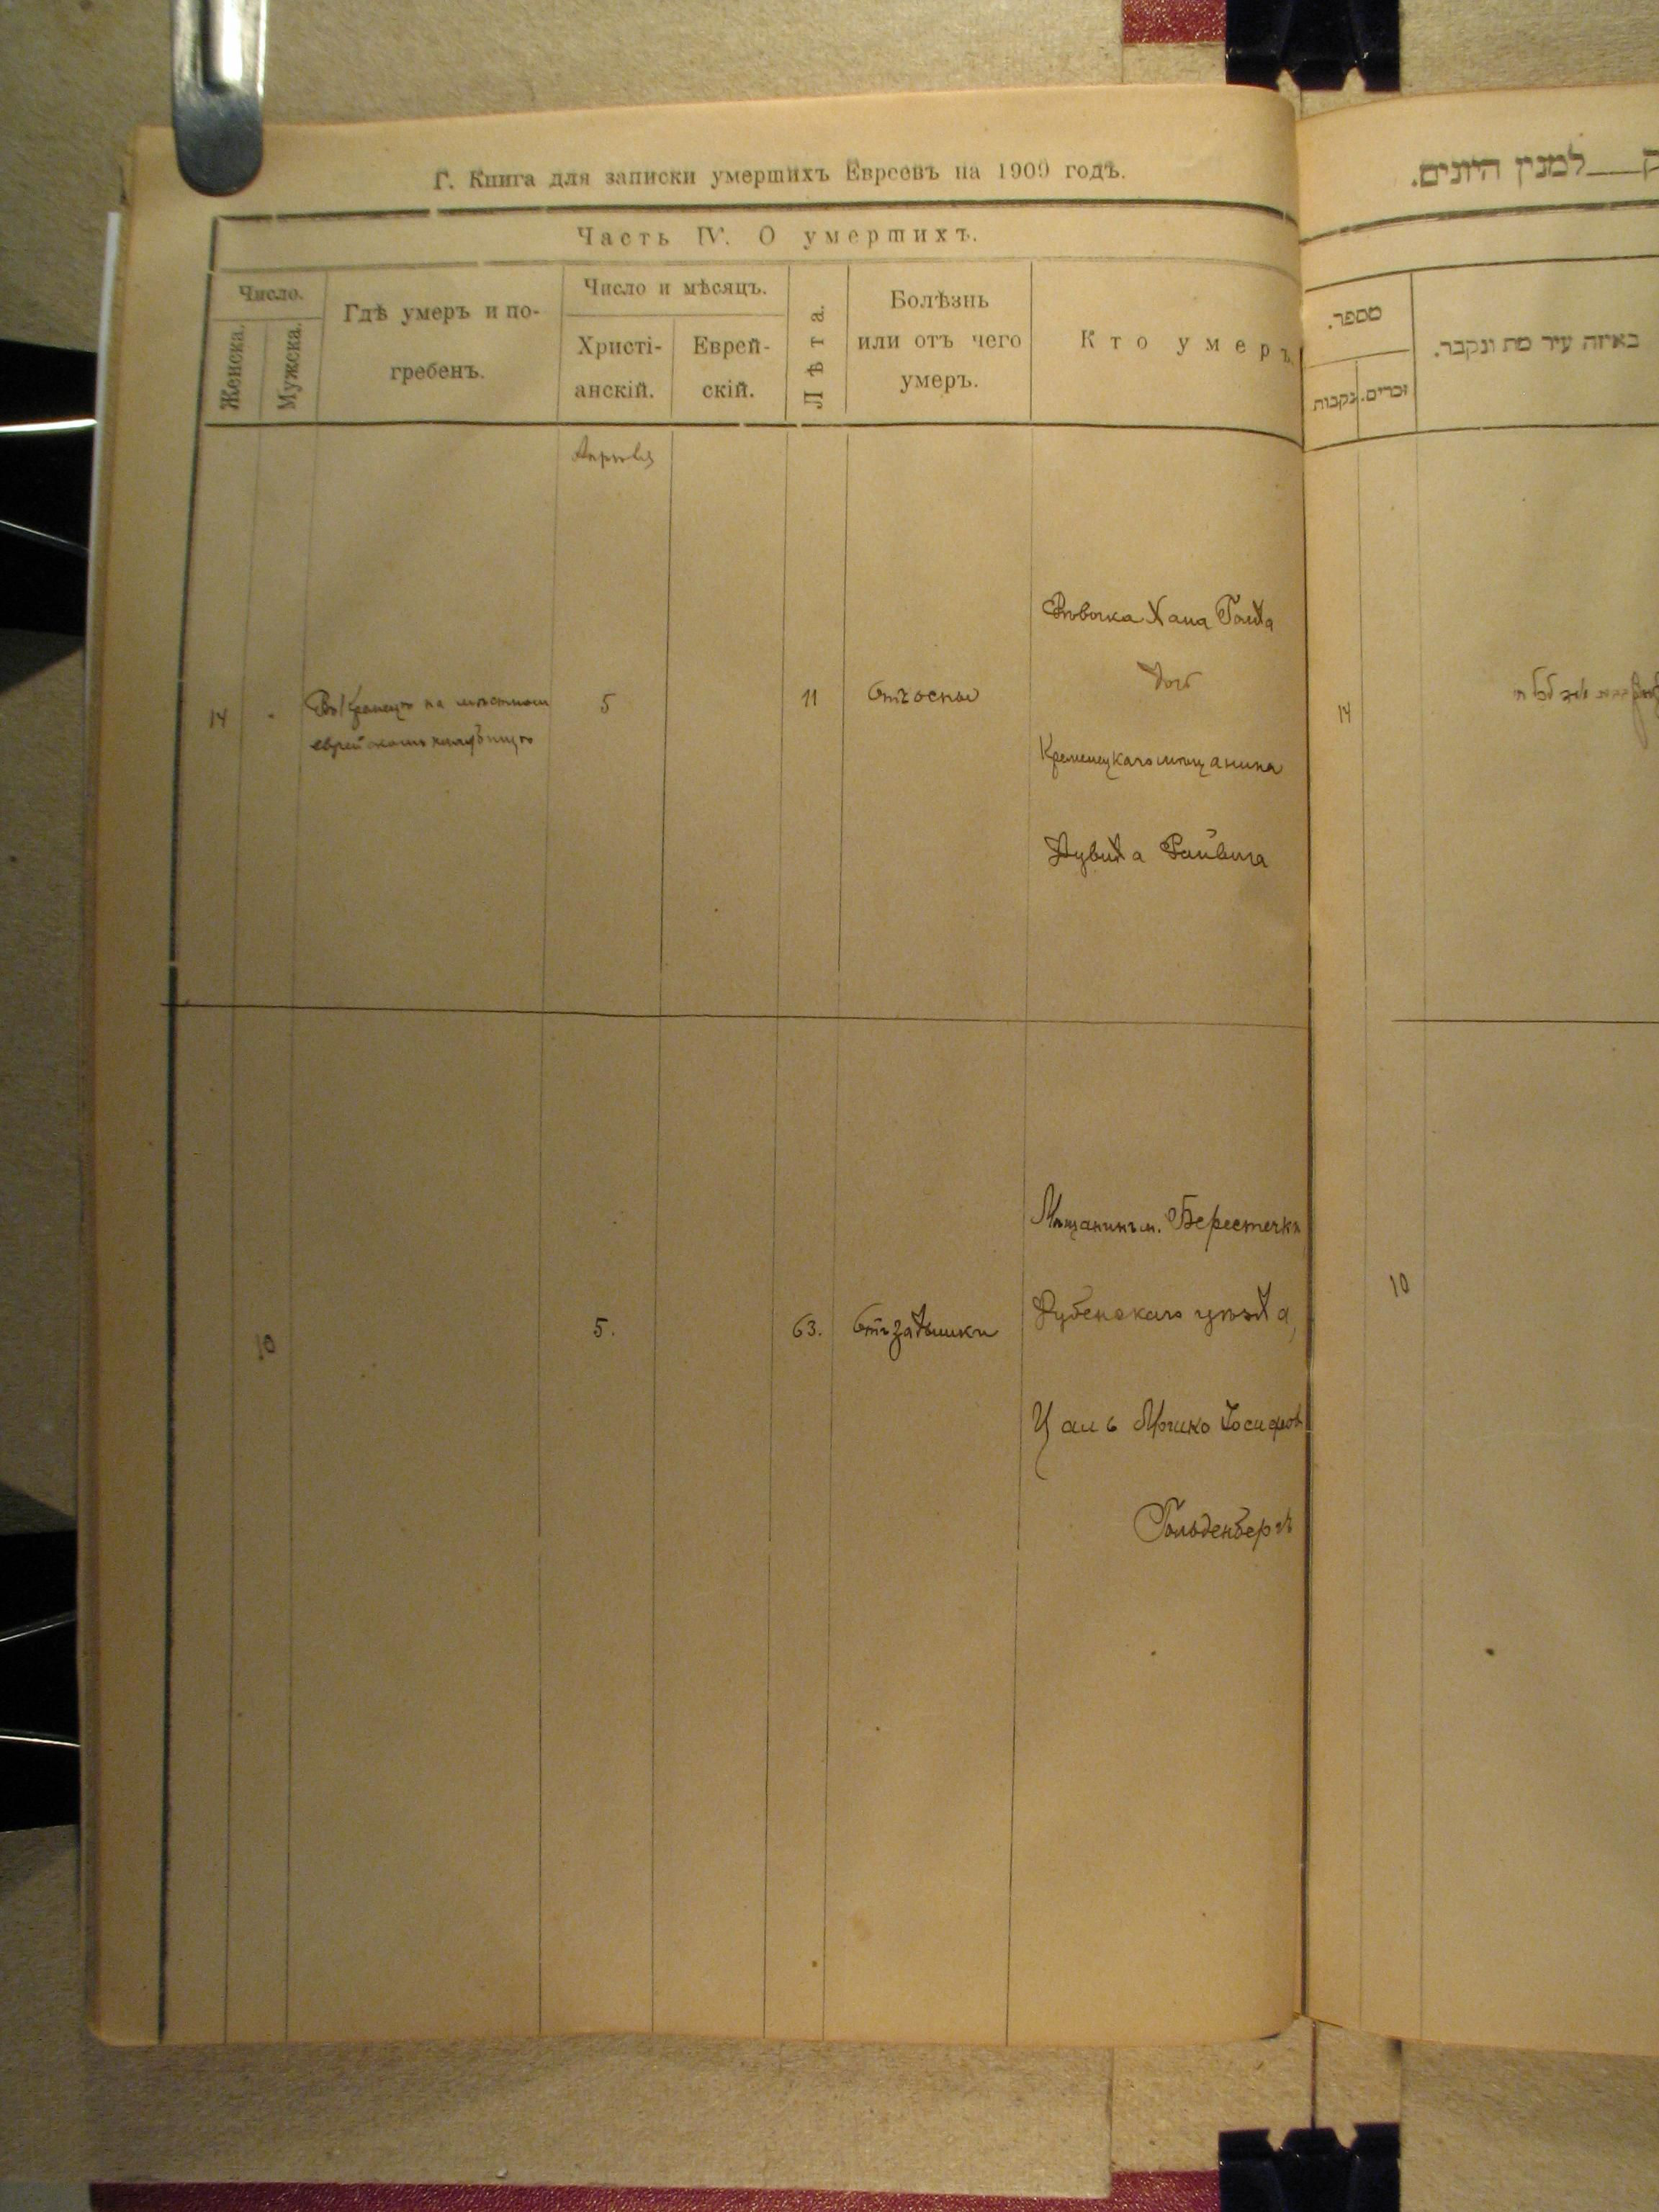 Г. Книга для записки умершихъ Евреевъ на 1909 годъ.
Часть IV. О умершихъ.
Число.
Женска.
Мужска.
Гдѣ умеръ и по-
гребенъ.
Число и мѣсяцъ.
Христі-
анскій.
Еврей-
скій.
Лѣта.
Болѣзнь
или отъ чего
умеръ.
Кто умеръ.
Апрѣля
14
Въ Кременцѣ на мѣстномъ
еврейскомъ кладбищѣ
5
11
Отъ оспы
Дѣвочка Хана Голда
дочь
Кременецкаго мѣщанина
Дувида Райвича
10
5.
63.
Отъ задышки
Мѣщанинъ м. Берестечка
Дубенскаго уѣзда,
Цаль Мошко Іосифов
Гольденбергъ
למנין היונים.
מספר.
נקבות
זכרים.
באיזה עיר מת ונקבר.
14
10